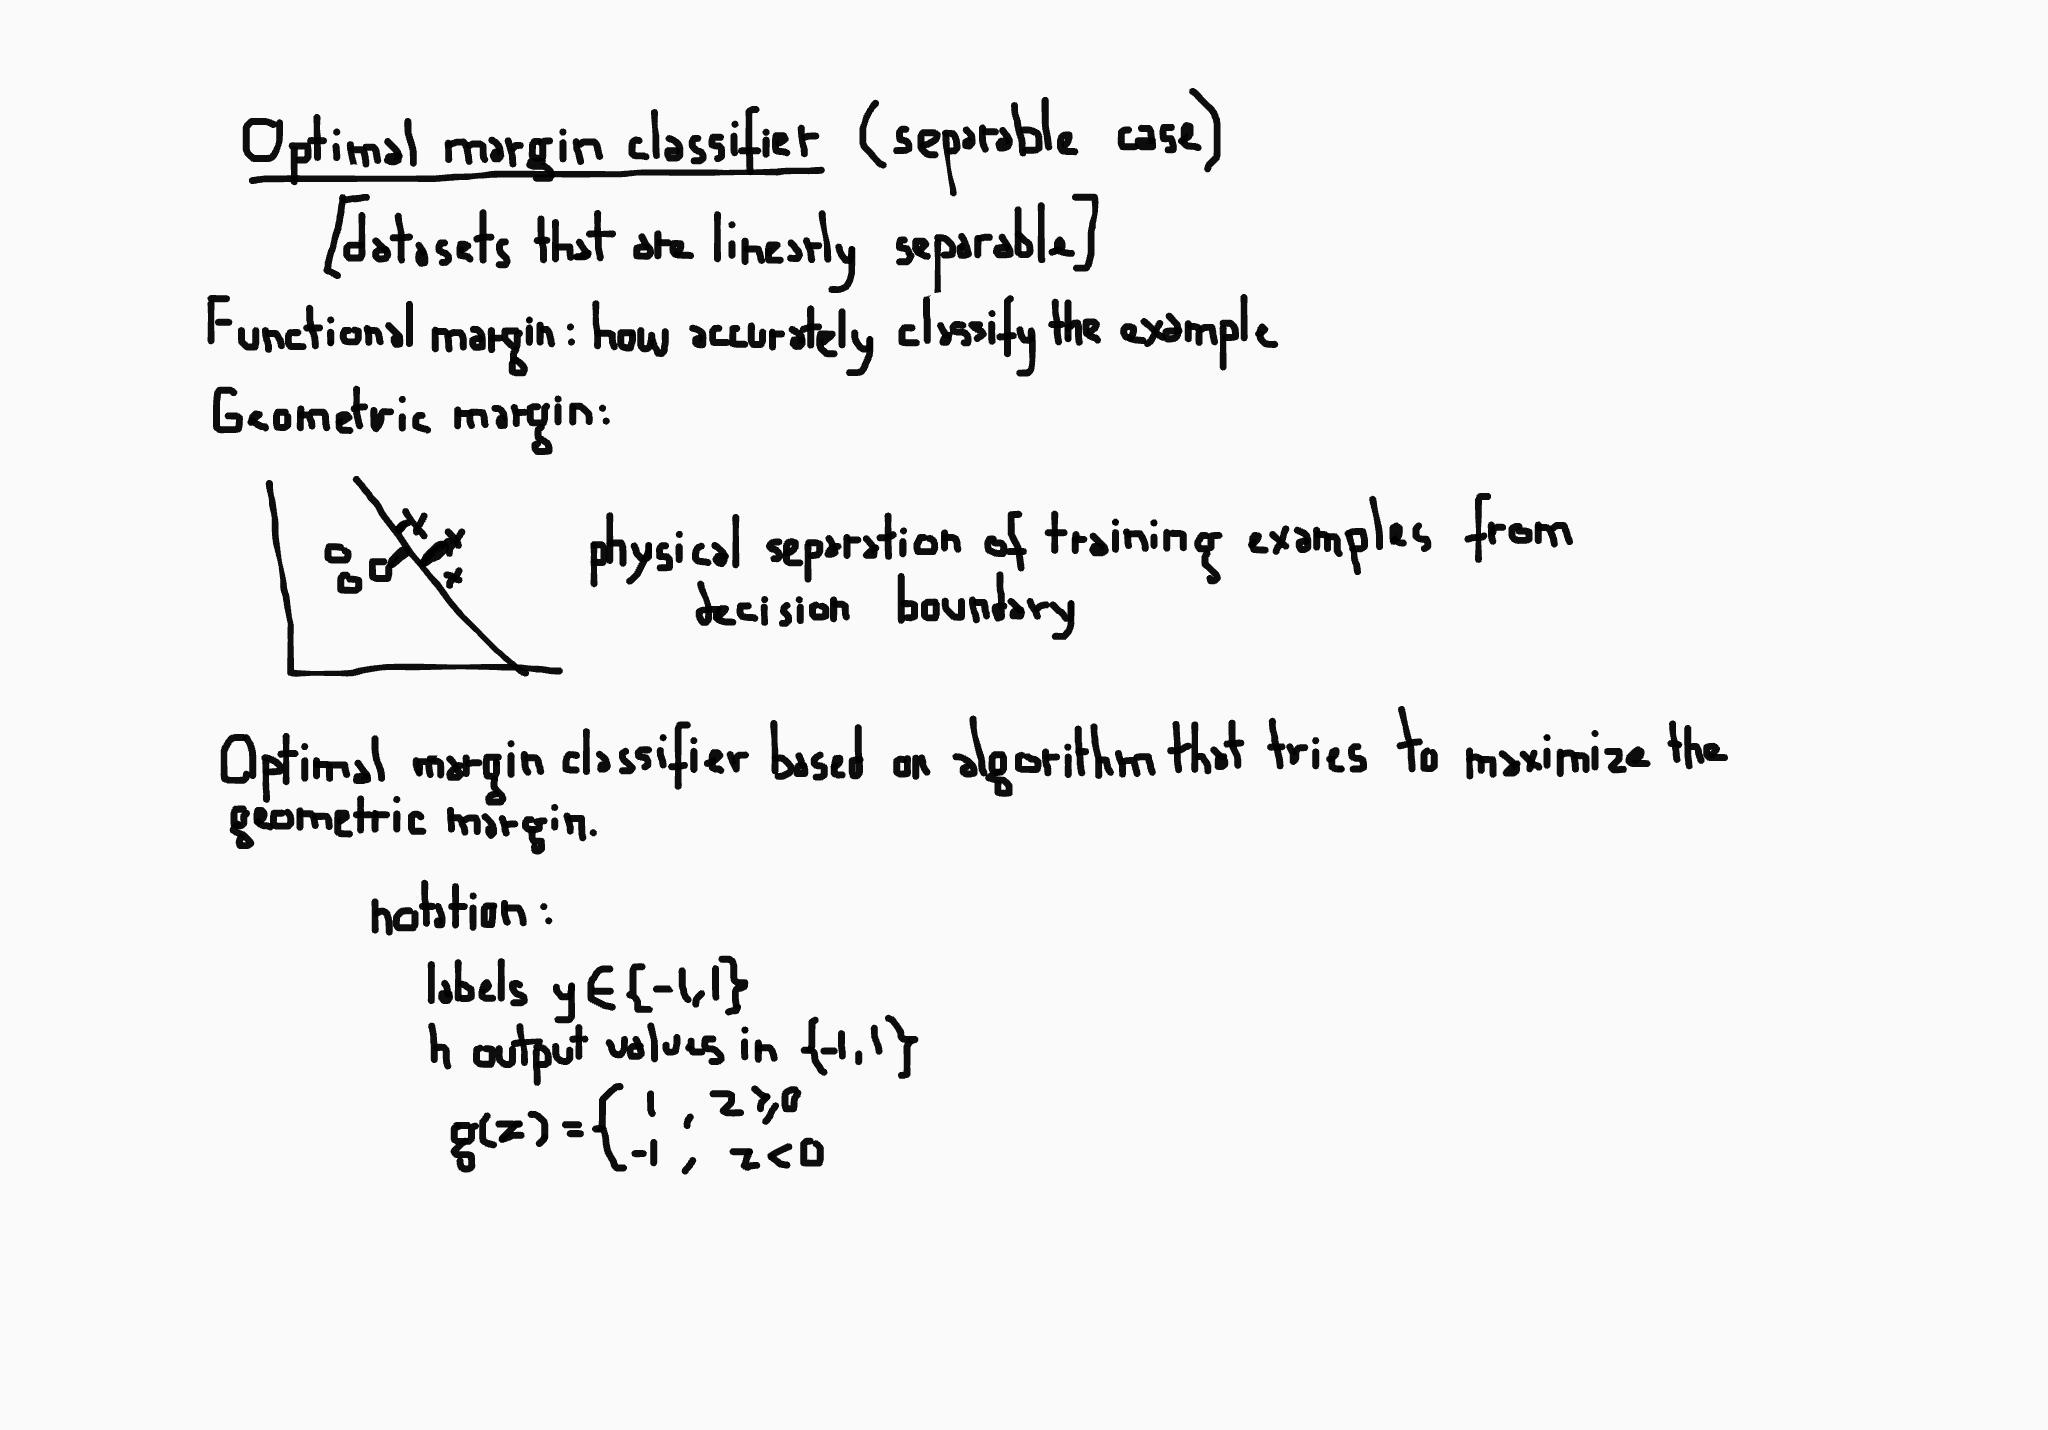 Optimal margin classifier (separable case)
[datasets that are linearly separable]
Functional margin: how accurately classify the example
Geometric margin:
physical separation of training examples from
decision boundary
Optimal margin classifier based on algorithm that tries to maximize the
geometric margin.
notation:
labels y ∈ {-1, 1}
h output values in {-1, 1}
g(z) = { 1 , z ⩾ 0
-1 , z < 0